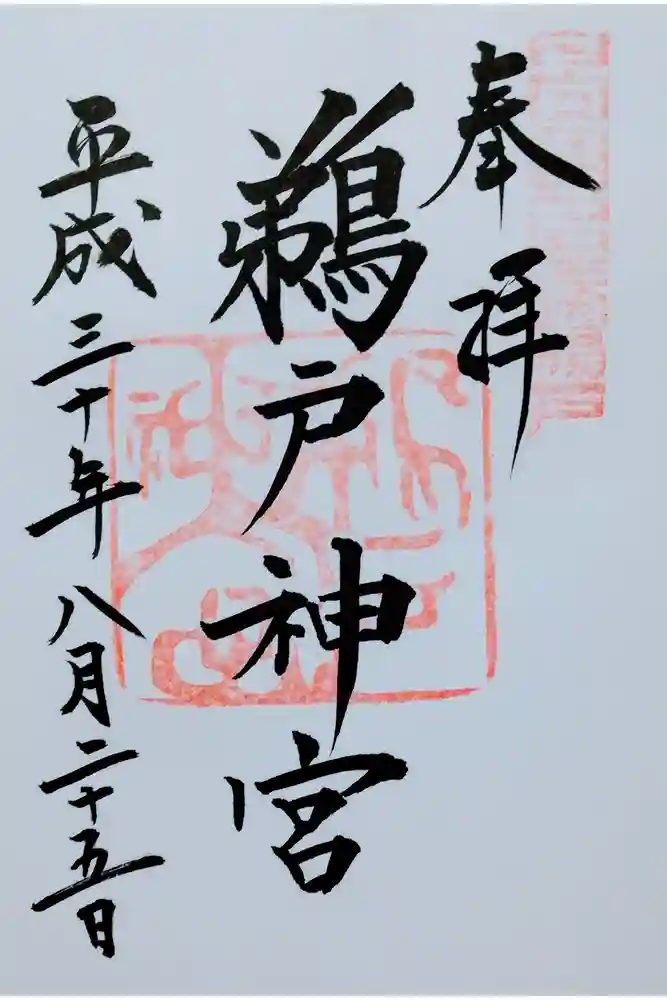 奉拝
鵜戸神宮
平成三十年八月二十五日